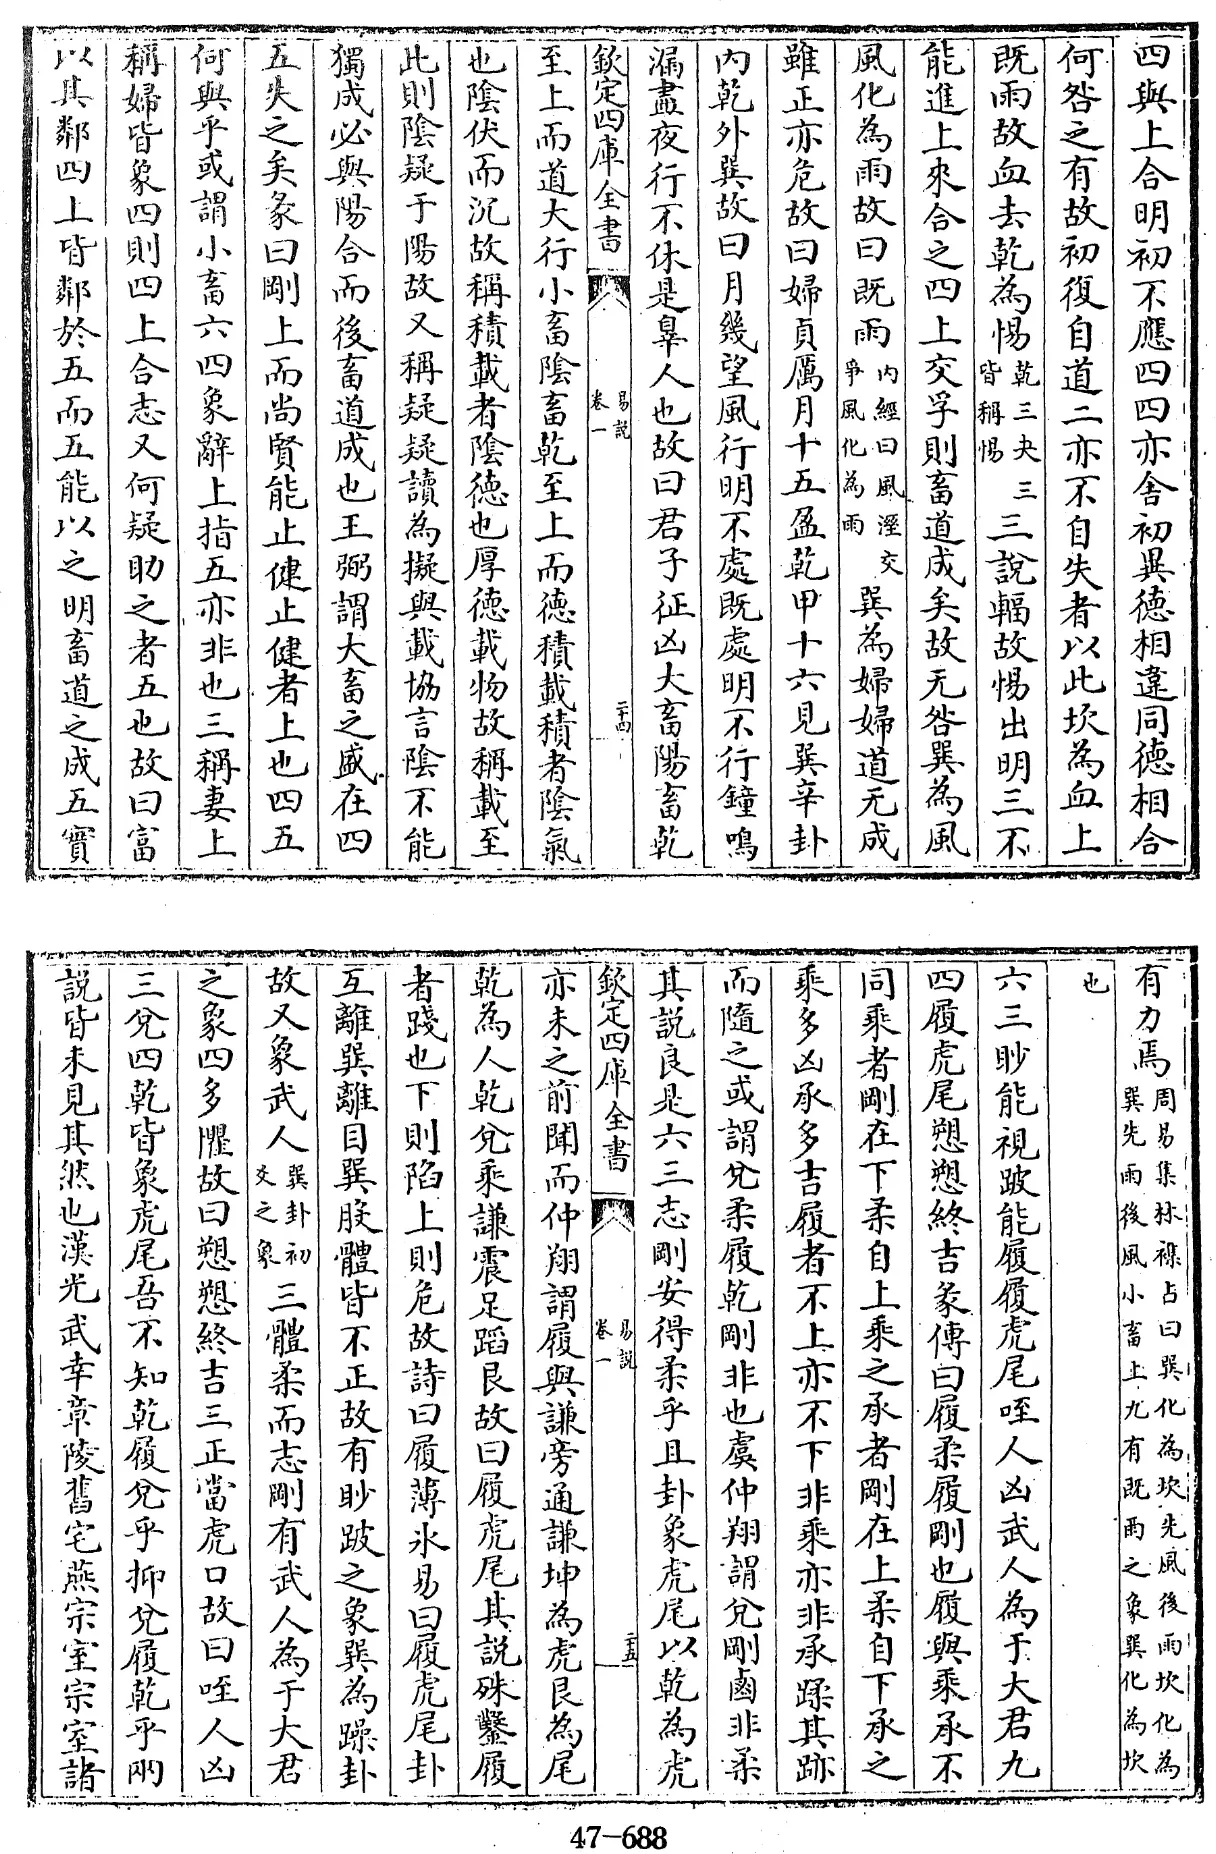 四與上合明初不應四四亦舎初異德相違同德相合
何咎之有故初復自道二亦不自失者以此坎為血上
既雨故血去乾為惕乾三夬三皆稱惕三說輻故惕出明三不
能進上來合之四上交孚則畜道成矣故无咎巽為風
風化為雨故曰既雨内經曰風溼交爭風化為雨巽為婦婦道无成
雖正亦危故曰婦貞厲月十五盈乾甲十六見巽辛卦
内乾外巽故曰月幾望風行明不處既處明不行鐘鳴
漏盡夜行不休是辠人也故曰君子征凶大畜陽畜乾
欽定四庫全書
易說
卷一
二十四
至上而道大行小畜陰畜乾至上而德積載積者陰氣
也陰伏而沉故稱積載者陰德也厚德載物故稱載至
此則陰疑于陽故又稱疑疑讀為擬與載協言陰不能
獨成必與陽合而後畜道成也王弼謂大畜之盛在四
五失之矣彖曰剛上而尚賢能止健止健者上也四五
何與乎或謂小畜六四象辭上指五亦非也三稱妻上
稱婦皆象四則四上合志又何疑助之者五也故曰富
以其鄰四上皆鄰於五而五能以之明畜道之成五實
有力焉周易集林襍占曰巽化為坎先風後雨坎化為巽先雨後風小畜上九有既雨之象巽化為坎
也
六三眇能視跛能履履虎尾咥人凶武人為于大君九
四履虎尾愬愬終吉彖傳曰履柔履剛也履與乘承不
同乘者剛在下柔自上乘之承者剛在上柔自下承之
乘多凶承多吉履者不上亦不下非乘亦非承蹂其跡
而隨之或謂兌柔履乾剛非也虞仲翔謂兌剛鹵非柔
其說良是六三志剛安得柔乎且卦象虎尾以乾為虎
欽定四庫全書
易說
卷一
二十五
亦未之前聞而仲翔謂履與謙旁通謙坤為虎艮為尾
乾為人乾兌乘謙震足蹈艮故曰履虎尾其說殊鑿履
者踐也下則陷上則危故詩曰履薄氷易曰履虎尾卦
互離巽離目巽股體皆不正故有眇跛之象巽為躁卦
故又象武人巽卦初爻之象三體柔而志剛有武人為于大君
之象四多懼故曰愬愬終吉三正當虎口故曰咥人凶
三兌四乾皆象虎尾吾不知乾履兌乎抑兌履乾乎兩
說皆未見其然也漢光武幸章陵舊宅燕宗室宗室諸
47-688